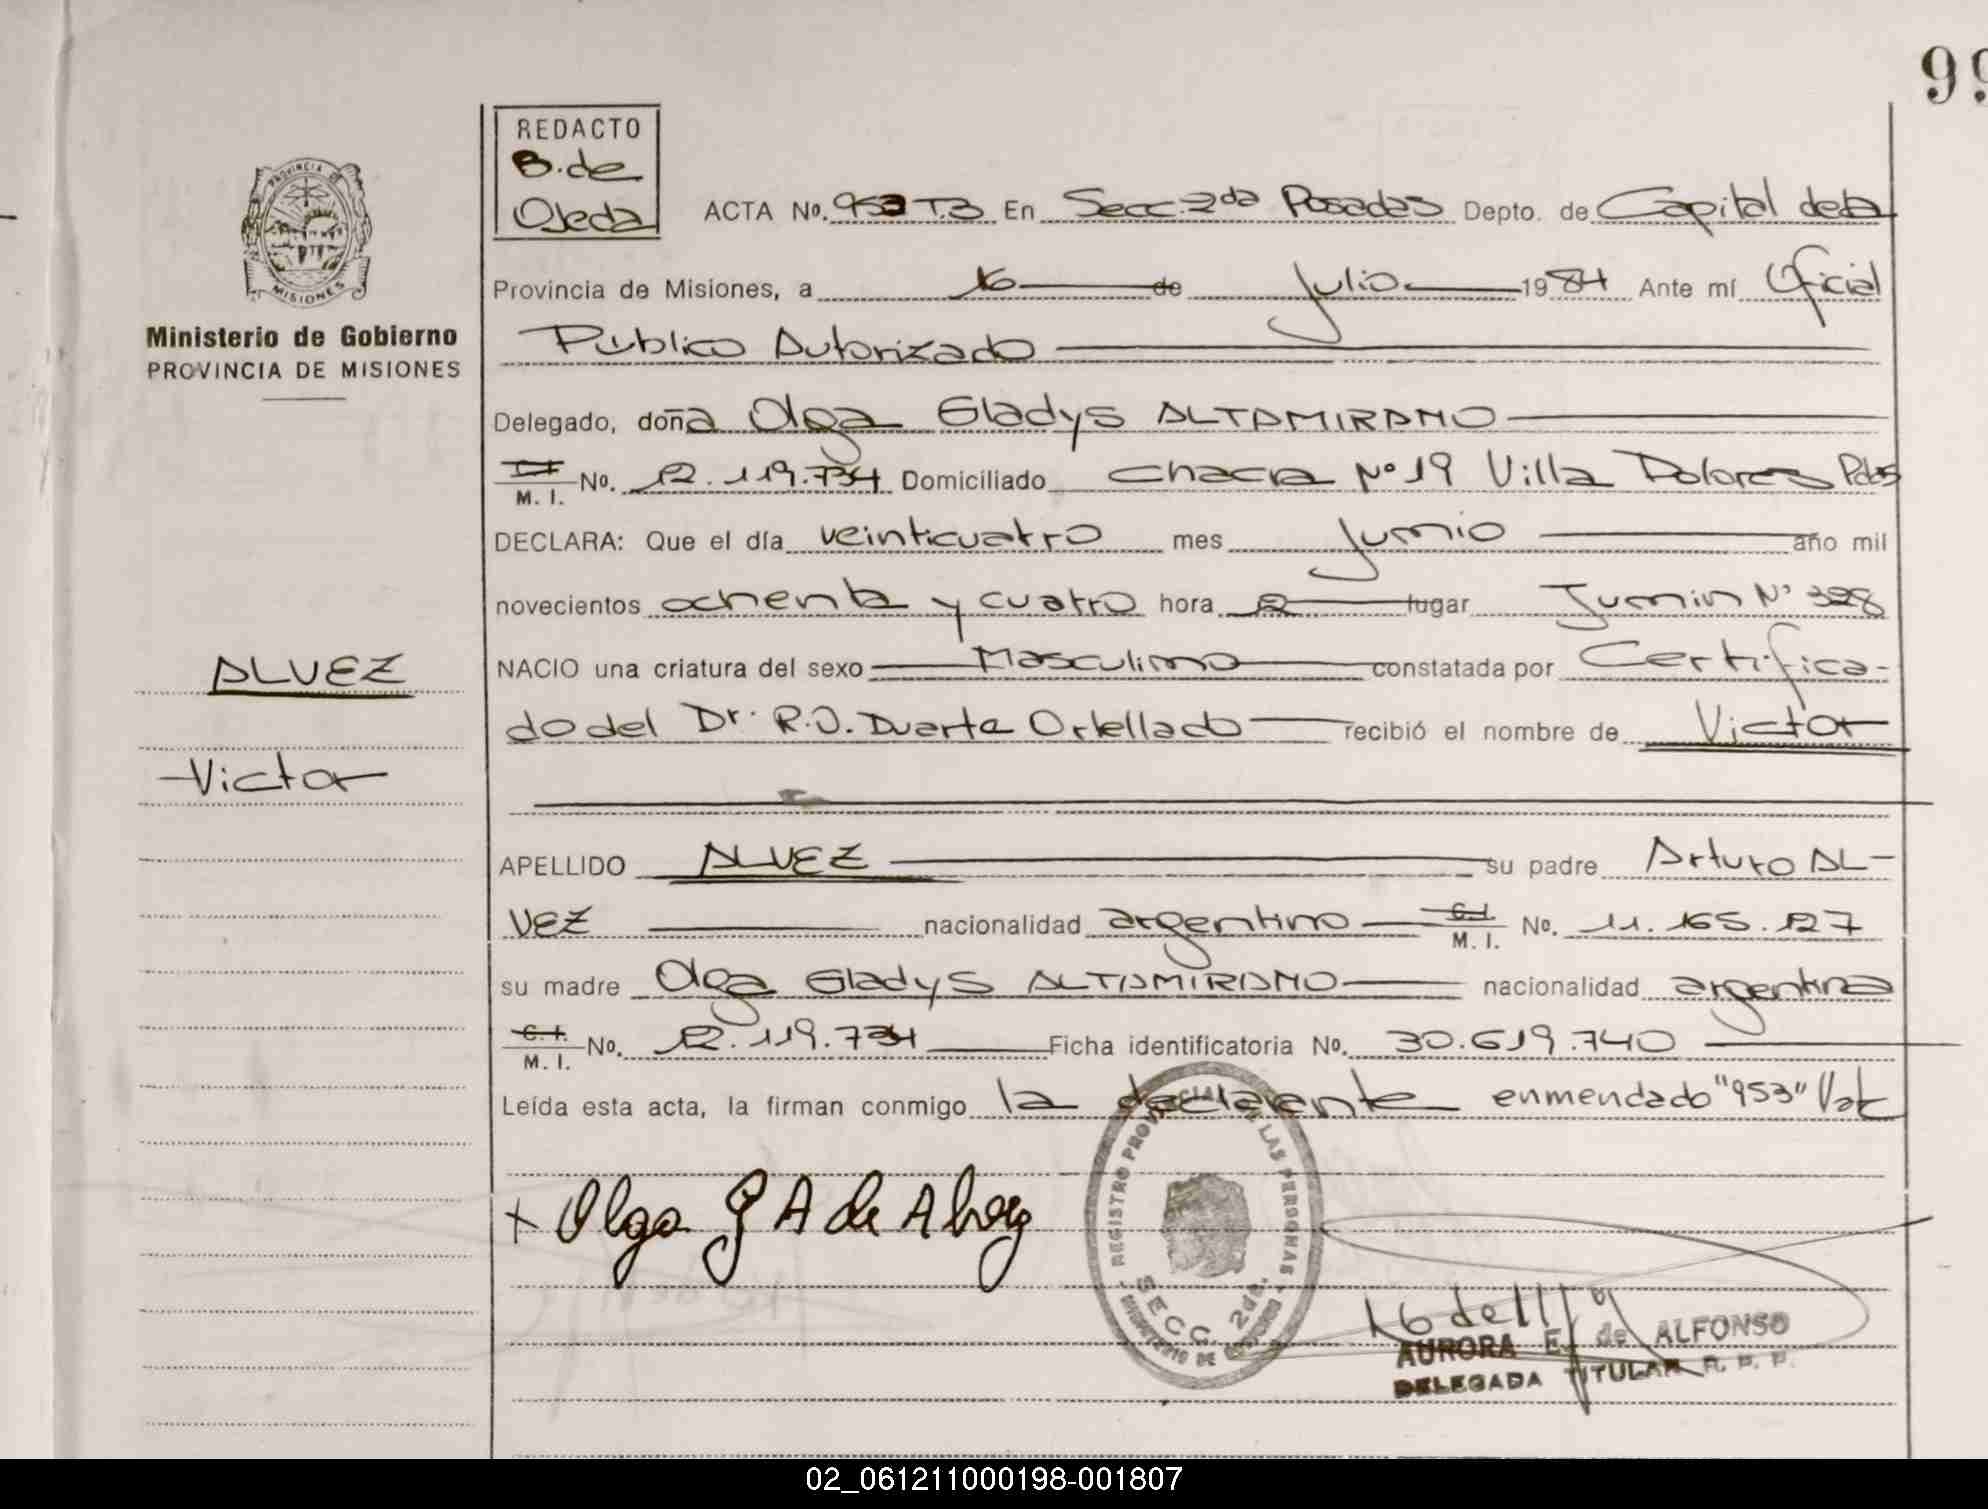 99
REDACTO
B. de
Ojeda
PROVINCIA DE
MISIONES
Ministerio de Gobierno
PROVINCIA DE MISIONES
ACTA No. 953 T.3 En Secc. 2da Posadas Depto. de Capital de la
Provincia de Misiones, a 16 de Julio 1984 Ante mí Oficial
Publico Autorizado
Delegado, doña Olga Gladys ALTAMIRANO
M. I. No. 12.119.734 Domiciliado chacra Nº 19 Villa Dolores Pdas
DECLARA: Que el día veinticuatro mes Junio año mil
novecientos ochenta y cuatro hora 2 lugar Junin Nº 328
NACIO una criatura del sexo Masculino constatada por Certifica-
do del Dr. R.O. Duarte Ortellado recibió el nombre de Victor
ALVEZ
Victor
APELLIDO ALVEZ su padre Arturo AL-
VEZ nacionalidad argentino C.I. M. I. No. 11.165.127
su madre Olga Gladys ALTAMIRANO nacionalidad argentina
C.I. M. I. No. 12.119.734 Ficha identificatoria No. 30.619.740
Leída esta acta, la firman conmigo la declarante enmendado "953" Vale
+ Olga G A de Alvez
REGISTRO PROVINCIAL DE LAS PERSONAS
SECC. 2da.
MINISTERIO DE GOBIERNO
AURORA E. de ALFONSO
DELEGADA TITULAR R. P. P.
02_061211000198-001807